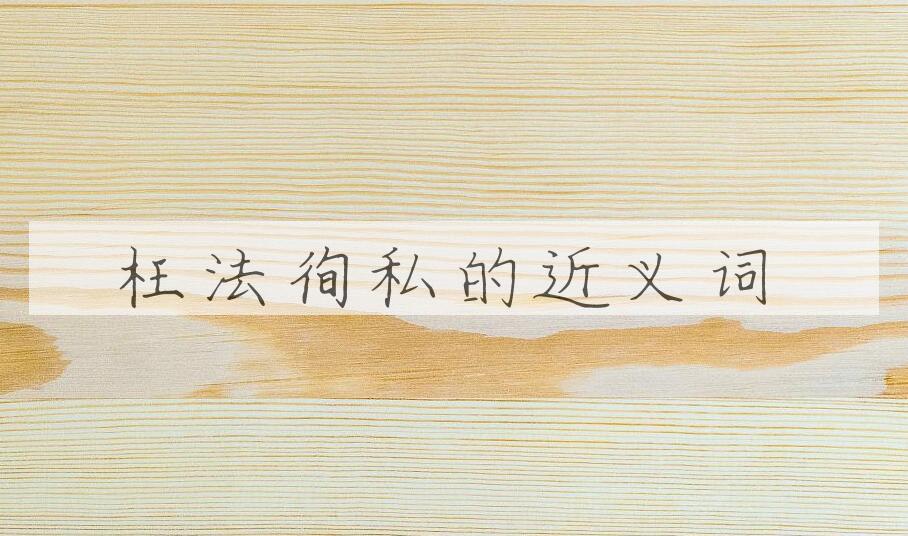 枉法徇私的近义词